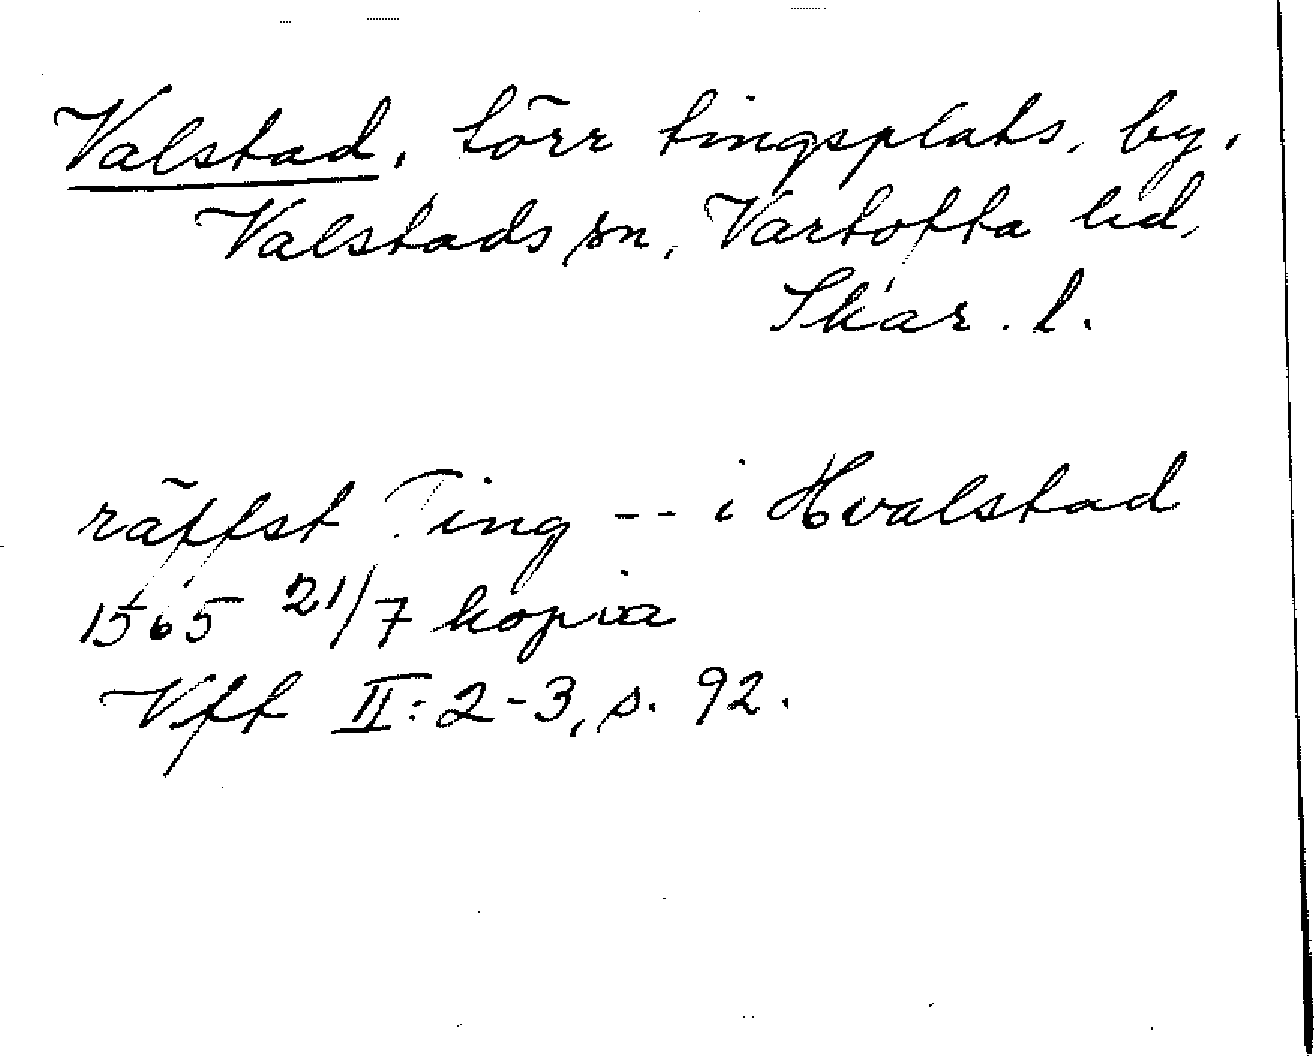 Valstad, förr tingsplats, by,
Valstads sn, Vartofta hd,
Skar. l.
räffst Ting -- i Hvalstad
1565 21/7 kopia
Vff II: 2-3, s. 92.